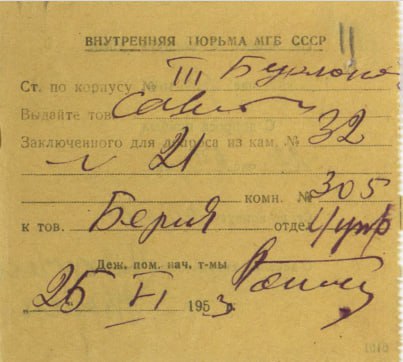 ВНУТРЕННЯЯ ТЮРЬМА МГБ СССР
Ст. по корпусу № III
Выдайте тов.
Заключенного для допроса из кам. № 32
№ 21
комн. № 305
к тов. Берия отдел 4 упр
Деж. пом. нач. т-мы
„25" VI 1953г.